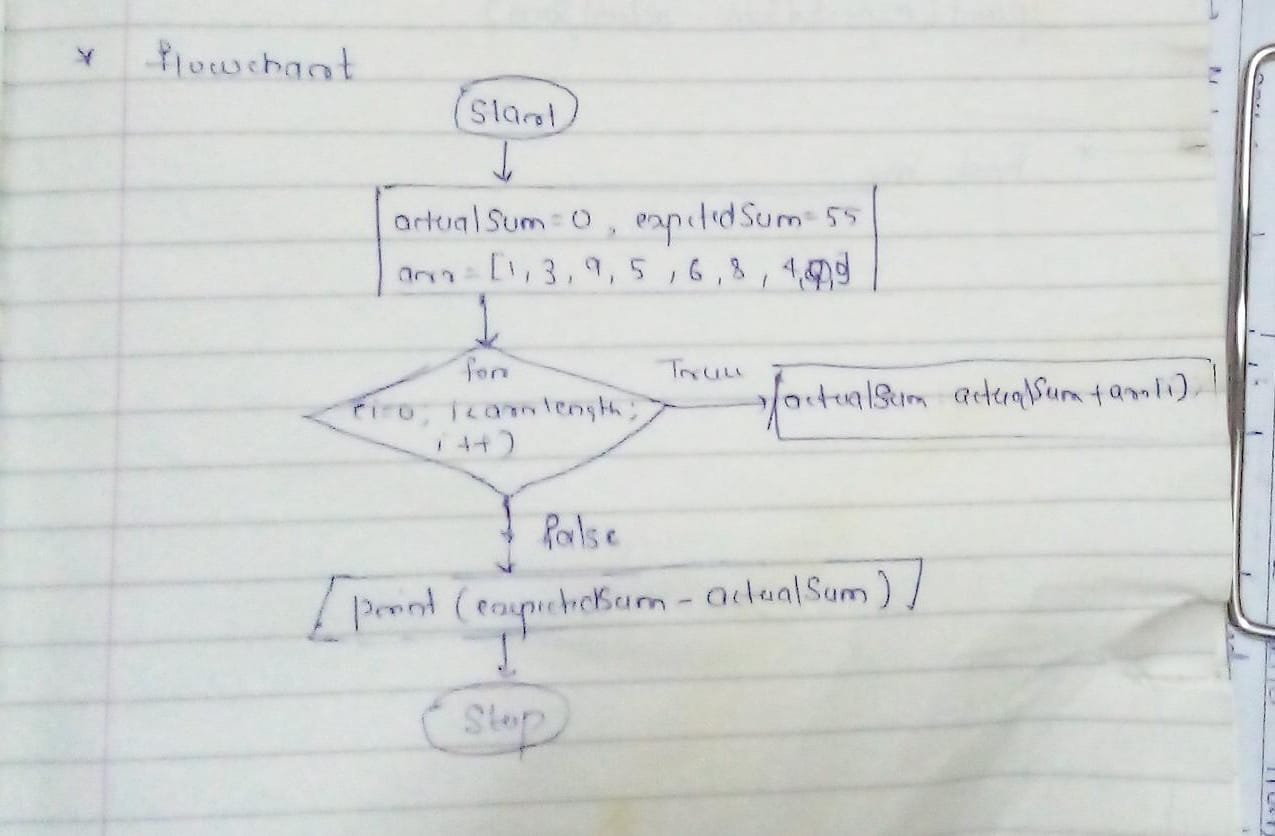 * Flowchart
Start
actualSum = 0, expctedSum = 55
arr = [1, 3, 9, 5, 6, 8, 4,
for
(i=0; i<arr length;
i++)
True
actualSum actualSum + arr[i]
False
print (expectedSum - actualSum)
Stop